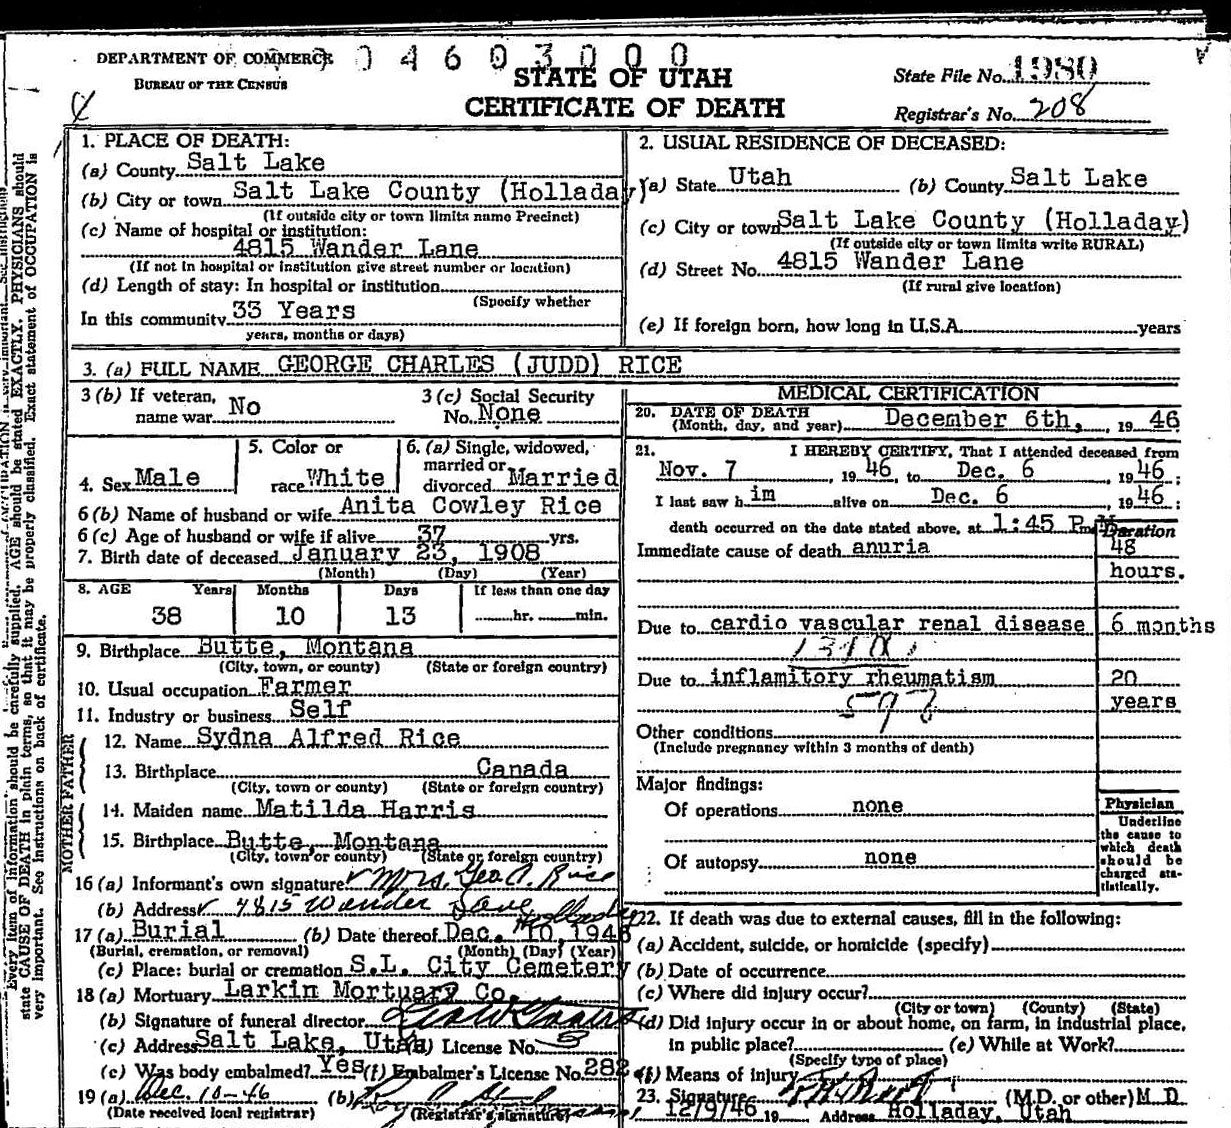 DEPARTMENT OF COMMERCE
BUREAU OF THE CENSUS
04603000
STATE OF UTAH
CERTIFICATE OF DEATH
State File No. 1980
Registrar's No. 208
1. PLACE OF DEATH:
(a) County Salt Lake
(b) City or town Salt Lake County (Holladay)
(If outside city or town limits name Precinct)
(c) Name of hospital or institution:
4815 Wander Lane
(If not in hospital or institution give street number or location)
(d) Length of stay: In hospital or institution
(Specify whether
In this community 33 Years
years, months or days)
2. USUAL RESIDENCE OF DECEASED:
(a) State Utah (b) County Salt Lake
(c) City or town Salt Lake County (Holladay)
(If outside city or town limits write RURAL)
(d) Street No. 4815 Wander Lane
(If rural give location)
(e) If foreign born, how long in U.S.A. years
3. (a) FULL NAME GEORGE CHARLES (JUDD) RICE
3 (b) If veteran, name war No
3 (c) Social Security No. None
4. Sex Male
5. Color or race White
6. (a) Single, widowed, married or divorced Married
6 (b) Name of husband or wife Anita Cowley Rice
6 (c) Age of husband or wife if alive 37 yrs.
7. Birth date of deceased January 23, 1908
(Month) (Day) (Year)
8. AGE Years Months Days If less than one day
38 10 13 hr. min.
9. Birthplace Butte, Montana
(City, town, or county) (State or foreign country)
10. Usual occupation Farmer
11. Industry or business Self
FATHER
12. Name Sydna Alfred Rice
13. Birthplace Canada
(City, town or county) (State or foreign country)
MOTHER
14. Maiden name Matilda Harris
15. Birthplace Butte, Montana
(City, town or county) (State or foreign country)
16 (a) Informant's own signature Mrs. Geo. A. Rice
(b) Address 4815 Wander Lane Holladay
17 (a) Burial (b) Date thereof Dec. 10, 1946
(Burial, cremation, or removal) (Month) (Day) (Year)
(c) Place: burial or cremation S.L. City Cemetery
18 (a) Mortuary Larkin Mortuary Co.
(b) Signature of funeral director
(c) Address Salt Lake, Utah (d) License No.
(e) Was body embalmed? Yes (f) Embalmer's License No. 282
19 (a) Dec. 10-46 (b)
(Date received local registrar) (Registrar's signature)
MEDICAL CERTIFICATION
20. DATE OF DEATH
(Month, day, and year) December 6th, , 19 46
21. I HEREBY CERTIFY, That I attended deceased from
Nov. 7 , 19 46, to Dec. 6 , 19 46;
I last saw h im alive on Dec. 6 , 19 46;
death occurred on the date stated above, at 1:45 P.M.
Duration
Immediate cause of death anuria 48
hours.
Due to cardio vascular renal disease 6 months
Due to inflamitory rheumatism 20
years
Other conditions
(Include pregnancy within 3 months of death)
Major findings:
Of operations none
Of autopsy none
Physician
Underline
the cause to
which death
should be
charged sta-
tistically.
22. If death was due to external causes, fill in the following:
(a) Accident, suicide, or homicide (specify)
(b) Date of occurrence
(c) Where did injury occur?
(City or town) (County) (State)
(d) Did injury occur in or about home, on farm, in industrial place,
in public place? (e) While at Work?
(Specify type of place)
(f) Means of injury
23. Signature (M.D. or other) M D
12/9/46 19 Address Holladay, Utah
Every item of information should be carefully supplied. AGE should be stated EXACTLY. PHYSICIANS should
state CAUSE OF DEATH in plain terms, so that it may be properly classified. Exact statement of OCCUPATION is
very important. See instructions on back of certificate.